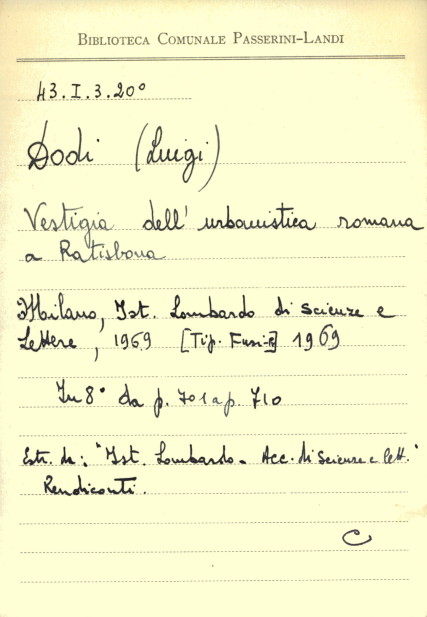 BIBLIOTECA COMUNALE PASSERINI-LANDI
43.I.3.20°
Dodi (Luigi)
Vestigia dell'urbanistica romana
a Ratisbona
Milano, Ist. Lombardo di Scienze e
Lettere, 1969 [Tip. Fusi] 1969
In 8° da p. 701 a p. 710
Estr. da: "Ist. Lombardo - Acc. di Scienze e lett."
Rendiconti.
C